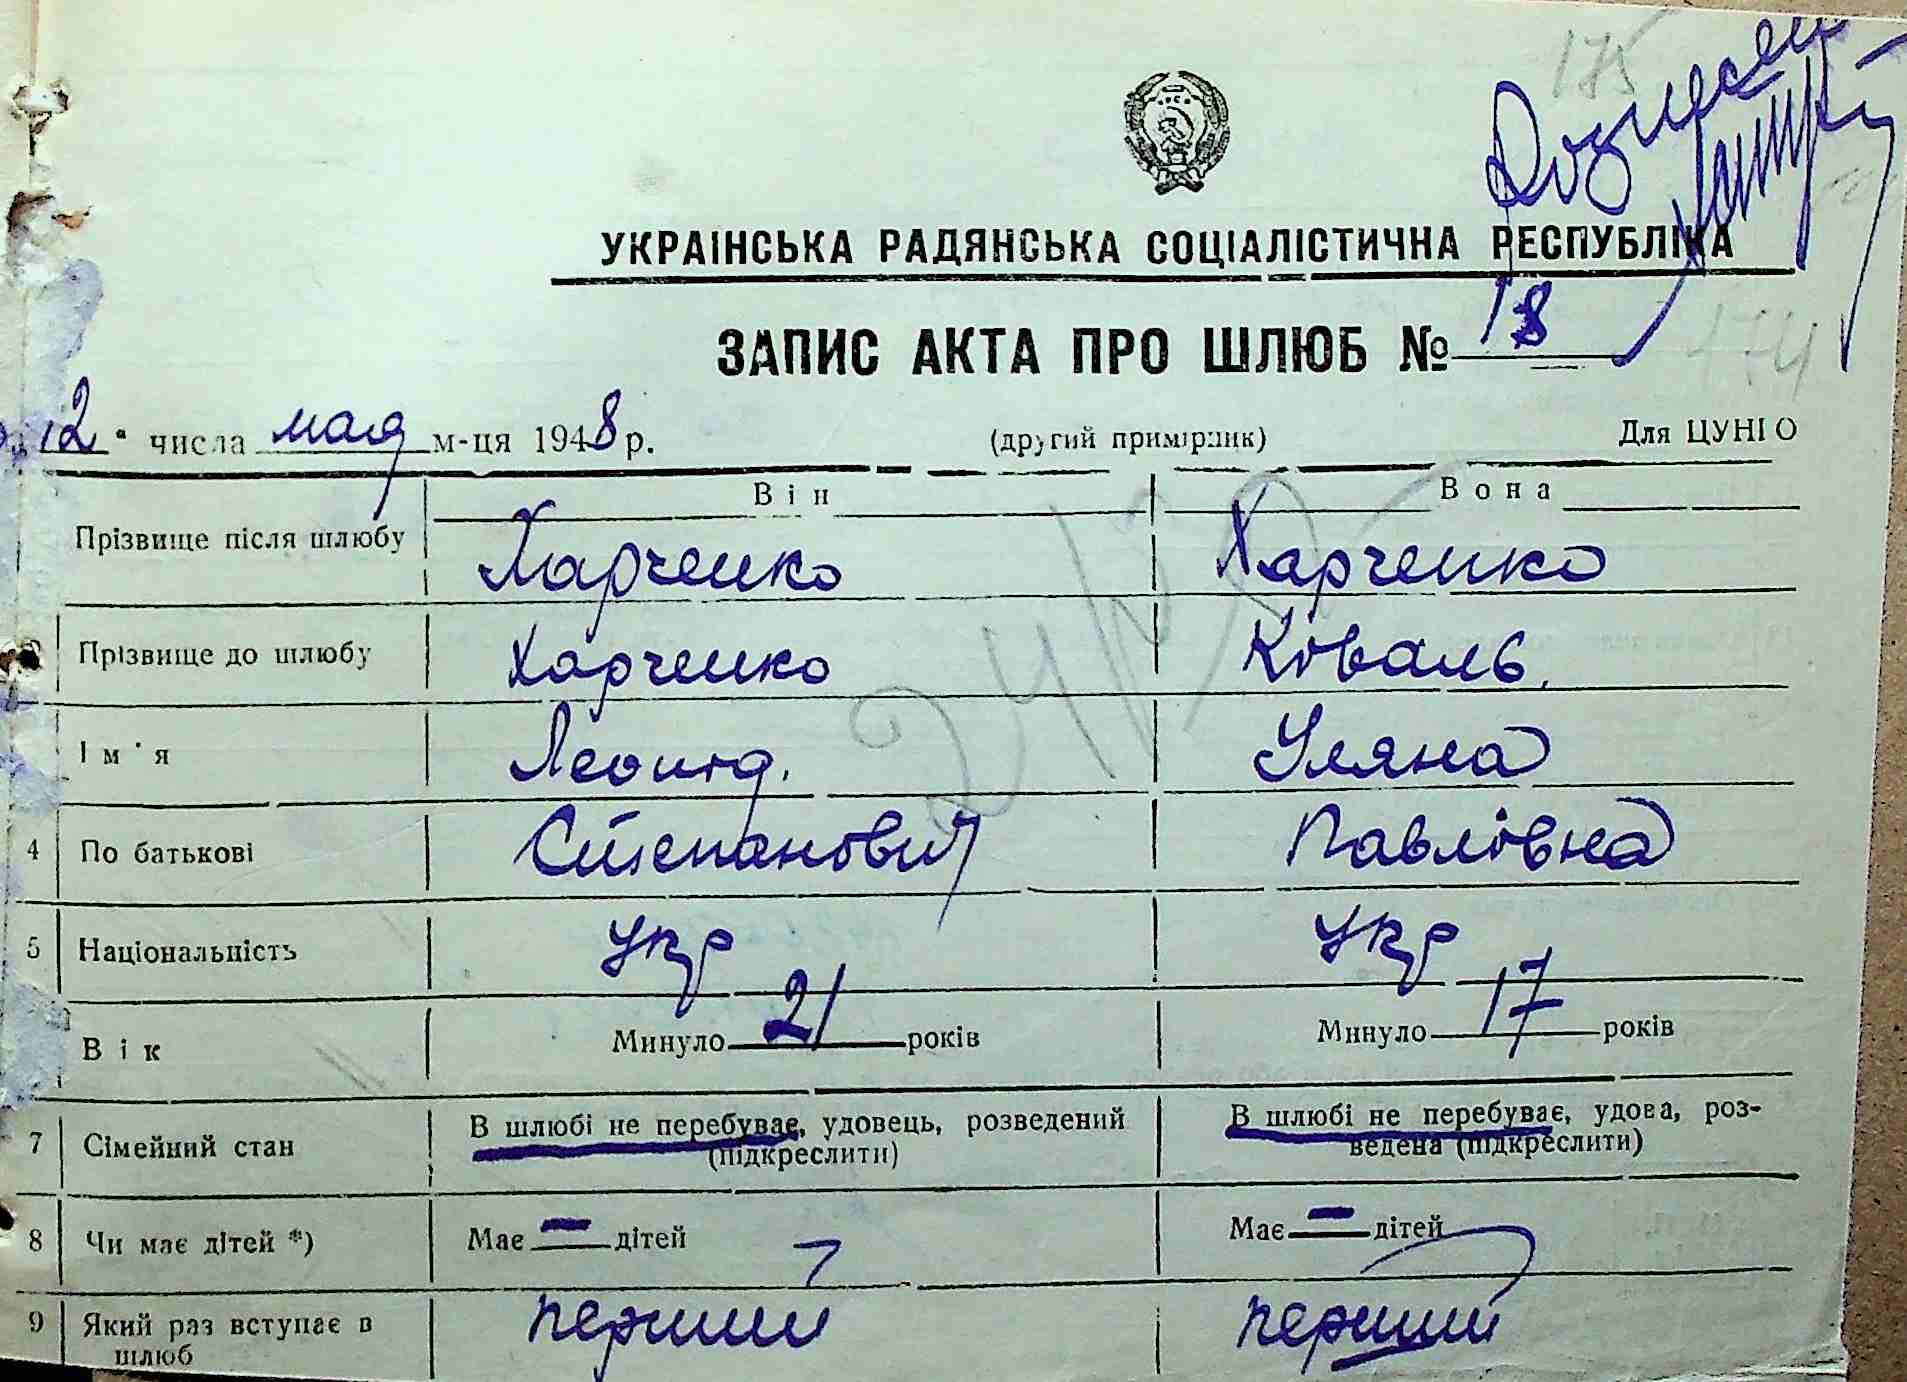 175
УКРАЇНСЬКА РАДЯНСЬКА СОЦІАЛІСТИЧНА РЕСПУБЛІКА
ЗАПИС АКТА ПРО ШЛЮБ № 18
174
12 " числа мая м-ця 1948 р. (другий примірник) Для ЦУНГО
Він Вона
Прізвище після шлюбу Харченко Харченко
Прізвище до шлюбу Харченко Коваль
Ім'я Леонід. Уляна
4 По батькові Степанович Павловна
5 Національність укр укр
Вік Минуло 21 років Минуло 17 років
7 Сімейний стан В шлюбі не перебуває, удовець, розведений (підкреслити) В шлюбі не перебуває, удова, роз-
ведена (підкреслити)
8 Чи має дітей *) Має — дітей Має — дітей
9 Який раз вступає в шлюб перший перший